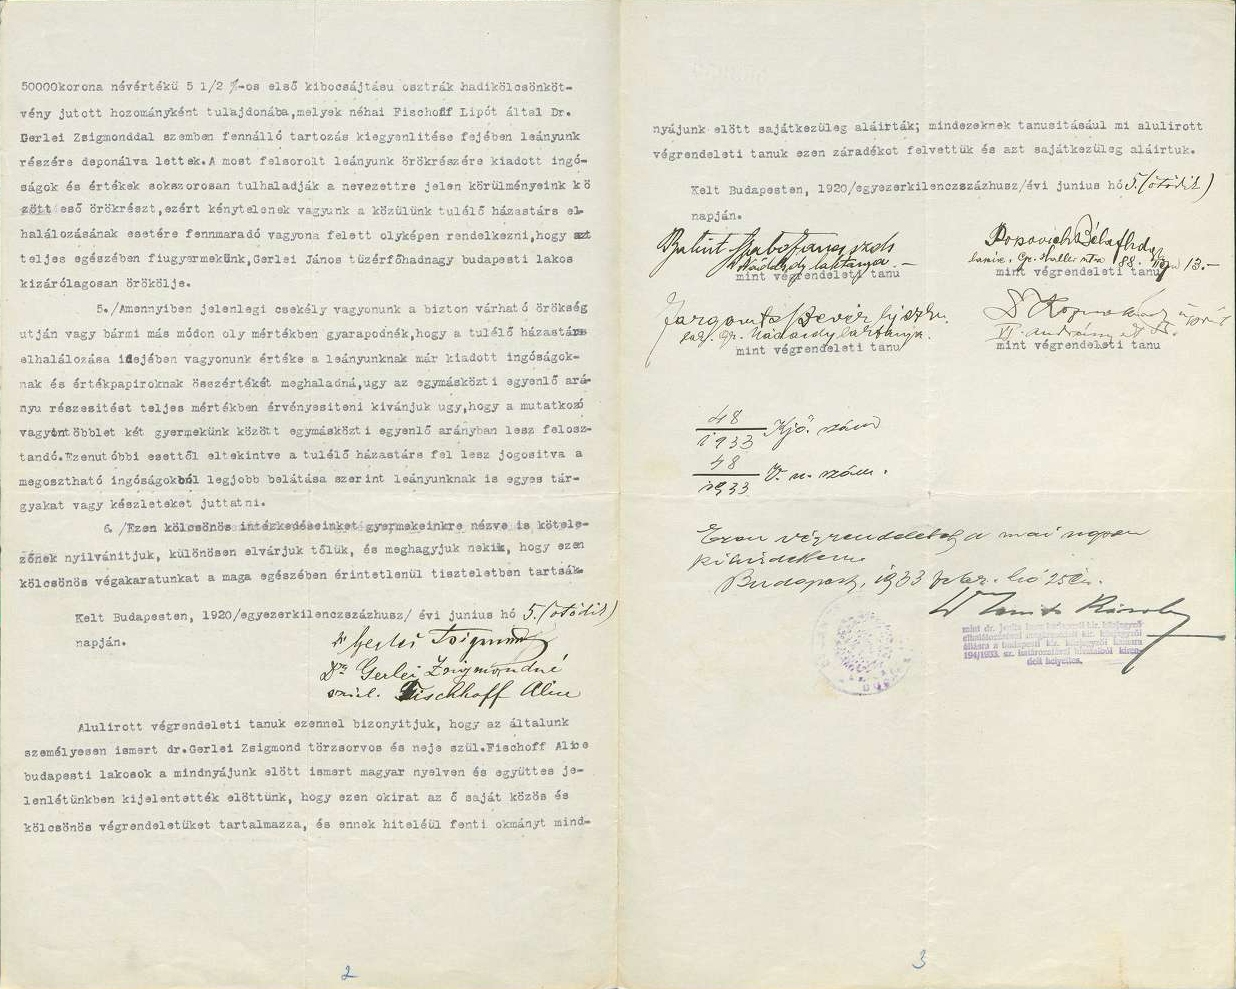 50000korona névértékü 5 1/2 %-os első kibocsájtásu osztrák hadikölcsönköt-
vény jutott hozományként tulajdonába,melyek néhai Fischoff Lipót által Dr.
Gerlei Zsigmonddal szemben fennálló tartozás kiegyenlitése fejében leányunk
részére deponálva lettek.A most felsorolt leányunk örökrészére kiadott ingó-
ságok és értékek sokszorosan tulhaladják a nevezettre jelen körülményeink kö
zött eső örökrészt,ezért kénytelenek vagyunk a közülünk tulélő házastárs el-
halálozásának esetére fennmaradó vagyona felett olyképen rendelkezni,hogy azt
teljes egészében fiugyermekünk,Gerlei János tüzérfőhadnagy budapesti lakos
kizárólagosan örökölje.
5./Amennyiben jelenlegi csekély vagyonunk a bizton várható örökség
utján vagy bármi más módon oly mértékben gyarapodnék,hogy a tulélő házastárs
elhalálozása idejében vagyonunk értéke a leányunknak már kiadott ingóságok-
nak és értékpapiroknak összértékét meghaladná,ugy az egymásközti egyenlő ará-
nyu részesitést teljes mértékben érvényesiteni kivánjuk ugy,hogy a mutatkozó
vagyontöbblet két gyermekünk között egymásközti egyenlő arányban lesz felosz-
tandó.Ezenutóbbi esettől eltekintve a tulélő házastárs fel lesz jogositva a
megosztható ingóságokból legjobb belátása szerint leányunknak is egyes tár-
gyakat vagy készleteket juttatni.
6./Ezen kölcsönös intézkedéseinket gyermekeinkre nézve is kötele-
zőnek nyilvánitjuk, különösen elvárjuk tőlük, és meghagyjuk nekik, hogy ezen
kölcsönös végakaratunkat a maga egészében érintetlenül tiszteletben tartsák.
Kelt Budapesten, 1920/egyezerkilenczszázhusz/ évi junius hó 5.(ötödik)
napján.
Dr Gerlei Zsigmond
Dr. Gerlei Zsigmondné
szül. Fischhoff Alice
Alulirott végrendeleti tanuk ezennel bizonyitjuk, hogy az általunk
személyesen ismert dr.Gerlei Zsigmond törzsorvos és neje szül.Fischoff Alice
budapesti lakosok a mindnyájunk elött ismert magyar nyelven és együttes je-
lenlétünkben kijelentették elöttünk, hogy ezen okirat az ő saját közös és
kölcsönös végrendeletüket tartalmazza, és ennek hiteléül fenti okmányt mind-
2
nyájunk elött sajátkezüleg aláirták; mindezeknek tanusitásául mi alulirott
végrendeleti tanuk ezen záradékot felvettük és azt sajátkezüleg aláirtuk.
Kelt Budapesten, 1920/egyezerkilenczszázhusz/évi junius hó 5.(ötödik)
napján.
Bálint Szabó János
Nádasdy laktanya
mint végrendeleti tanu
Popovich Béla
Haller utca 88. 13.-
mint végrendeleti tanu
Nádasdy laktanya.
mint végrendeleti tanu
VI. Andrássy út
mint végrendeleti tanu
48
1933 Kjő. szám
48
1933 V. u. szám.
Ezen végrendeletet a mai napon
kihirdettem
Budapest, 1933 febr. hó 25én.
mint dr.
194/1933. sz.
delt helyettes.
3